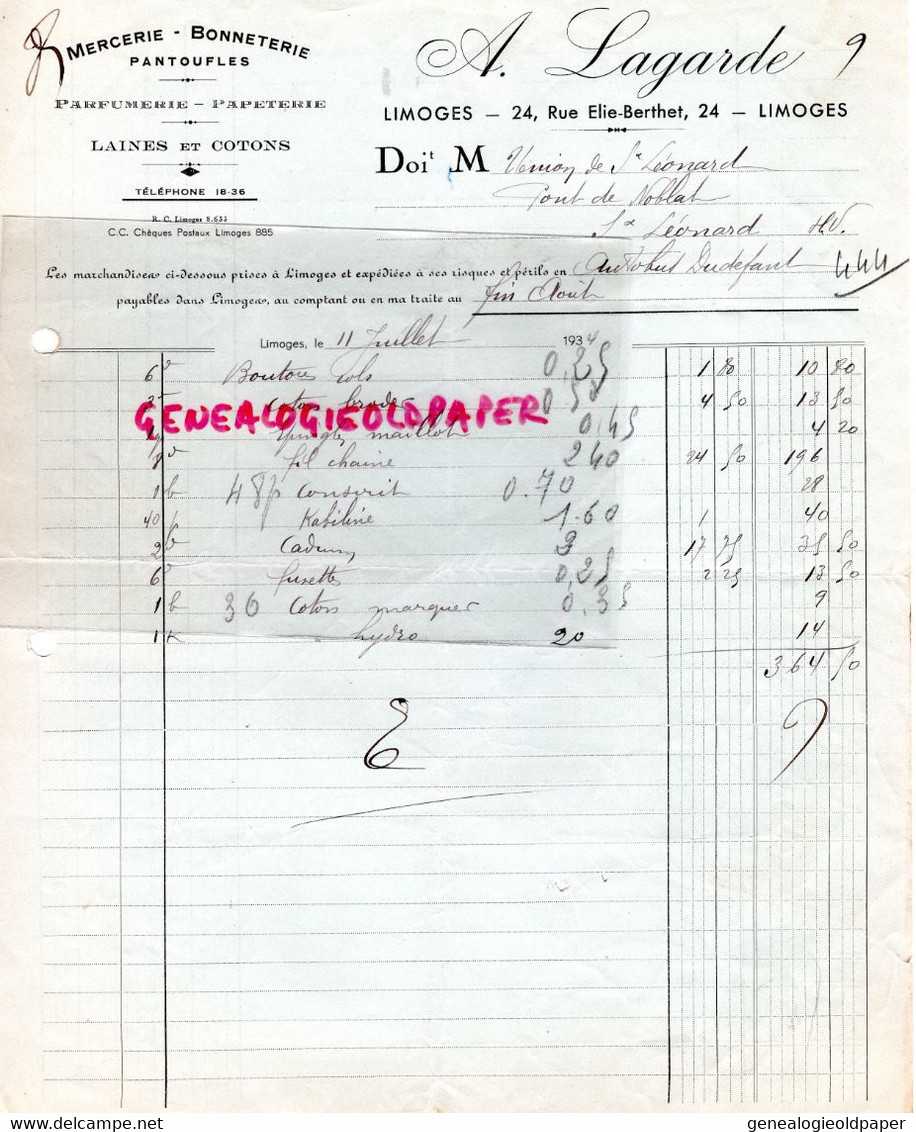 MERCERIE - BONNETERIE
PANTOUFLES
PARFUMERIE - PAPETERIE
LAINES ET COTONS
TÉLÉPHONE 18-36
R. C. Limoges 8.655
C.C. Chèques Postaux Limoges 885
A. Lagarde 9
LIMOGES — 24, Rue Elie-Berthet, 24 — LIMOGES
Doit M Union de St Léonard
Pont de Noblat
St Léonard H.V.
Les marchandises ci-dessous prises à Limoges et expédiées à ses risques et périls en Autobus Dudefant 444
payables dans Limoges, au comptant ou en ma traite au fin Août
Limoges, le 11 Juillet 1934
6 d Boutons cols 0.25 1 80 10 80
coton broder 0 50 4 50 13 50
GENEALOGIEOLDPAPER
épingles maillot 0.45 4 20
fil chaine 240 24 50 196
1 b 48 p conscrit 0.70 28
40 Kabiline 1.60 1 40
2 b Cadum 3 17 75 35 50
6 d fusettes 0.25 2 25 13 50
1 b 36 Cotons marquer 0.35 9
1 K hydro 20 14
364 50
genealogieoldpaper